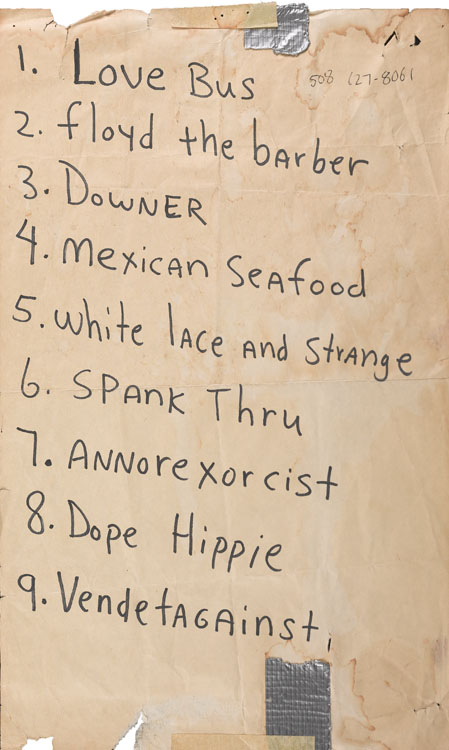 1. Love Bus
508 627-8061
2. floyd the barber
3. DOWNER
4. Mexican Seafood
5. white lace and Strange
6. SPANK Thru
7. ANNorexorcist
8. Dope Hippie
9. VendetAGAinst